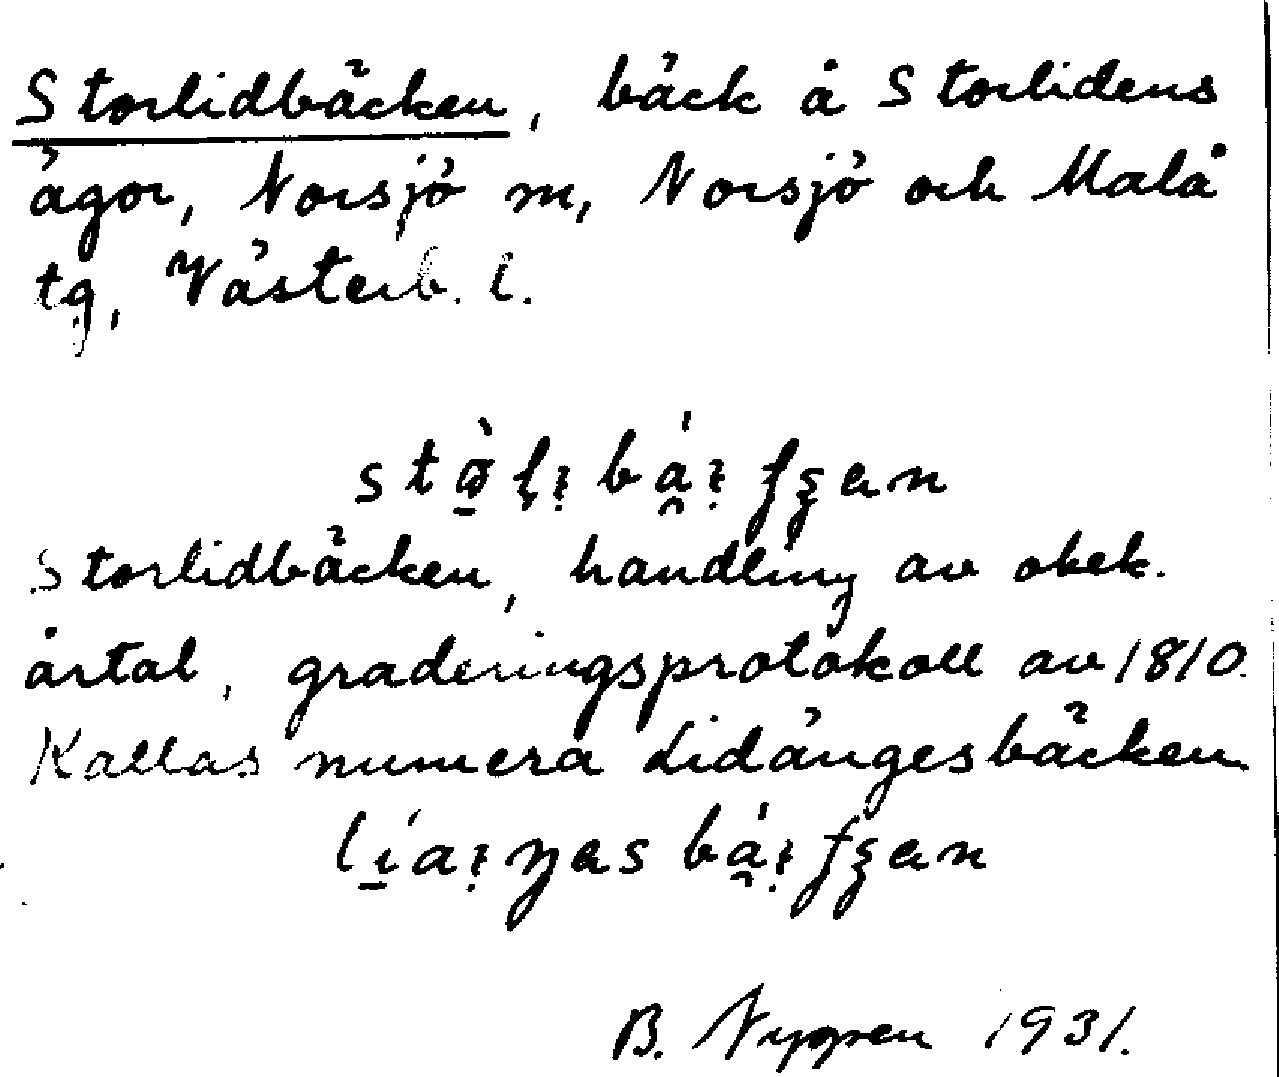 Storlidbäcken, bäck å Storlidens
ägor, Norsjö m, Norsjö och Malå
tg, Västerb. l.
Storlidbäcken, handling av obek.
årtal, graderingsprotokoll av 1810.
Kallas numera Lidängesbäcken
B. Nygren 1931.